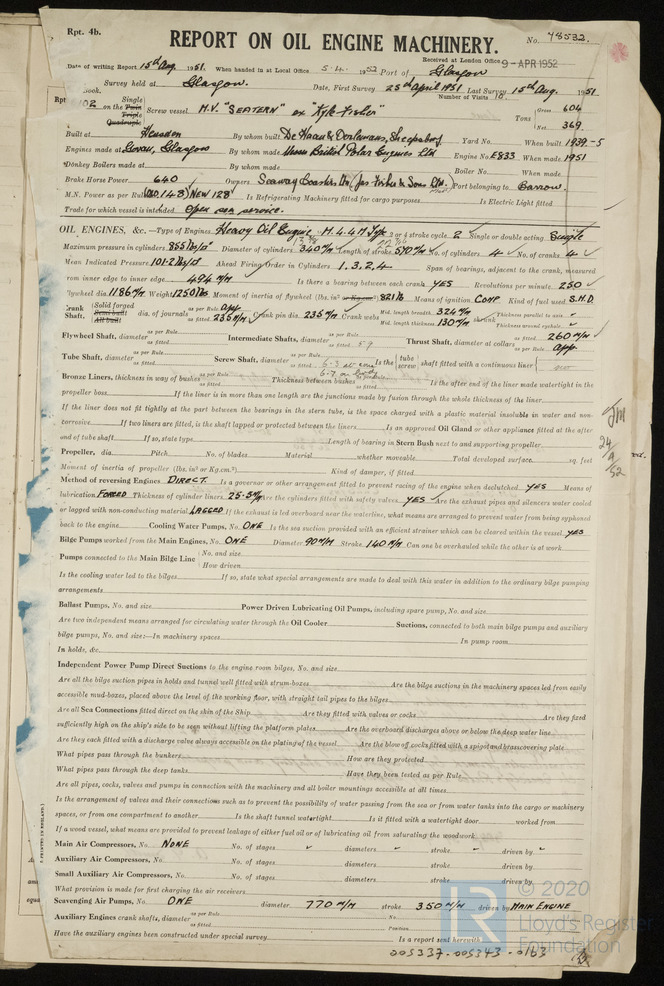 Rpt. 4b.
REPORT ON OIL ENGINE MACHINERY.
No. 78532.
Received at London Office 9 - APR 1952
Date of writing Report 15th Aug. 1951. When handed in at Local Office 5.4. 1952 Port of Glasgow
Survey held at Glasgow. Date, First Survey 25th April 1951 Last Survey 15th Aug. 1951.
Book. Number of Visits 10.
Single
on the Twin Screw vessel M.V. "SEATERN" ex "Kyle Fisher" Tons Gross 604
Triple
Quadruple Net 369.
Built at Heusden By whom built De Haan & Oerlemans, Yard No. When built 1939-5
Engines made at Govan, Glasgow By whom made Messrs British Polar Engines Ltd Engine No. E833 When made 1951
Donkey Boilers made at By whom made Boiler No. When made
Brake Horse Power 640 Owners Seaway Coasters Ltd (Jas Fisher & Sons Ltd. Port belonging to Barrow.
M.N. Power as per Rule (OLD, 148) NEW 128 Is Refrigerating Machinery fitted for cargo purposes Is Electric Light fitted
Trade for which vessel is intended Open sea service.
OIL ENGINES, &c. —Type of Engines Heavy Oil Engine M.44M Type 2 or 4 stroke cycle 2 Single or double acting Single
Maximum pressure in cylinders 855 lbs/□" Diameter of cylinders 340 m/m Length of stroke 570 m/m No. of cylinders 4 No. of cranks 4
Mean Indicated Pressure 101.2 lbs/□" Ahead Firing Order in Cylinders 1.3.2.4 Span of bearings, adjacent to the crank, measured
from inner edge to inner edge 494 m/m Is there a bearing between each crank YES Revolutions per minute 250
Flywheel dia. 1186 m/m Weight 1250 lbs Moment of inertia of flywheel (lbs. in² or Kg.cm.²) 821 lb Means of ignition COMP Kind of fuel used S.H.D.
Crank Shaft, Solid forged Semi built All built dia. of journals as per Rule App as fitted 235 m/m Crank pin dia. 235 m/m Crank webs Mid. length breadth 324 m/m Mid. length thickness 130 m/m shrunk Thickness parallel to axis Thickness around eyehole
Flywheel Shaft, diameter as per Rule as fitted Intermediate Shafts, diameter as per Rule as fitted 5.9 Thrust Shaft, diameter at collars as fitted 260 m/m as per Rule App
Tube Shaft, diameter as per Rule as fitted Screw Shaft, diameter as per Rule as fitted Is the tube screw shaft fitted with a continuous liner
Bronze Liners, thickness in way of bushes as per Rule as fitted Thickness between bushes as per Rule as fitted Is the after end of the liner made watertight in the
propeller boss If the liner is in more than one length are the junctions made by fusion through the whole thickness of the liner
If the liner does not fit tightly at the part between the bearings in the stern tube, is the space charged with a plastic material insoluble in water and non-
corrosive If two liners are fitted, is the shaft lapped or protected between the liners Is an approved Oil Gland or other appliance fitted at the after
end of tube shaft If so, state type Length of bearing in Stern Bush next to and supporting propeller
Propeller, dia. Pitch No. of blades Material whether moveable Total developed surface sq. feet
Moment of inertia of propeller (lbs. in² or Kg.cm.²) Kind of damper, if fitted
Method of reversing Engines DIRECT. Is a governor or other arrangement fitted to prevent racing of the engine when declutched YES Means of
lubrication FORCED Thickness of cylinder liners 25.5 m/m Are the cylinders fitted with safety valves YES Are the exhaust pipes and silencers water cooled
or lagged with non-conducting material LAGGED If the exhaust is led overboard near the waterline, what means are arranged to prevent water from being syphoned
back to the engine Cooling Water Pumps, No. ONE Is the sea suction provided with an efficient strainer which can be cleared within the vessel YES
Bilge Pumps worked from the Main Engines, No. ONE Diameter 90 m/m Stroke 140 m/m Can one be overhauled while the other is at work
Pumps connected to the Main Bilge Line No. and size
How driven
Is the cooling water led to the bilges If so, state what special arrangements are made to deal with this water in addition to the ordinary bilge pumping
arrangements
Ballast Pumps, No. and size Power Driven Lubricating Oil Pumps, including spare pump, No. and size
Are two independent means arranged for circulating water through the Oil Cooler Suctions, connected to both main bilge pumps and auxiliary
bilge pumps, No. and size:—In machinery spaces In pump room
In holds, &c.
Independent Power Pump Direct Suctions to the engine room bilges, No. and size
Are all the bilge suction pipes in holds and tunnel well fitted with strum-boxes Are the bilge suctions in the machinery spaces led from easily
accessible mud-boxes, placed above the level of the working floor, with straight tail pipes to the bilges
Are all Sea Connections fitted direct on the skin of the Ship Are they fitted with valves or cocks Are they fixed
sufficiently high on the ship's side to be seen without lifting the platform plates Are the overboard discharges above or below the deep water line
Are they each fitted with a discharge valve always accessible on the plating of the vessel Are the blow off cocks fitted with a spigot and brass covering plate
What pipes pass through the bunkers How are they protected
What pipes pass through the deep tanks Have they been tested as per Rule
Are all pipes, cocks, valves and pumps in connection with the machinery and all boiler mountings accessible at all times
Is the arrangement of valves and their connections such as to prevent the possibility of water passing from the sea or from water tanks into the cargo or machinery
spaces, or from one compartment to another Is the shaft tunnel watertight Is it fitted with a watertight door worked from
If a wood vessel, what means are provided to prevent leakage of either fuel oil or of lubricating oil from saturating the woodwork
Main Air Compressors, No. NONE No. of stages diameters stroke driven by
Auxiliary Air Compressors, No. No. of stages diameters stroke driven by
Small Auxiliary Air Compressors, No. No. of stages diameters stroke driven by
What provision is made for first charging the air receivers
Scavenging Air Pumps, No. ONE diameter 770 m/m stroke 350 m/m driven by MAIN ENGINE
Auxiliary Engines crank shafts, diameter as per Rule as fitted No. Position
Have the auxiliary engines been constructed under special survey Is a report sent herewith
005337-005343-0163
© 2020
LR
Lloyd's Register
Foundation